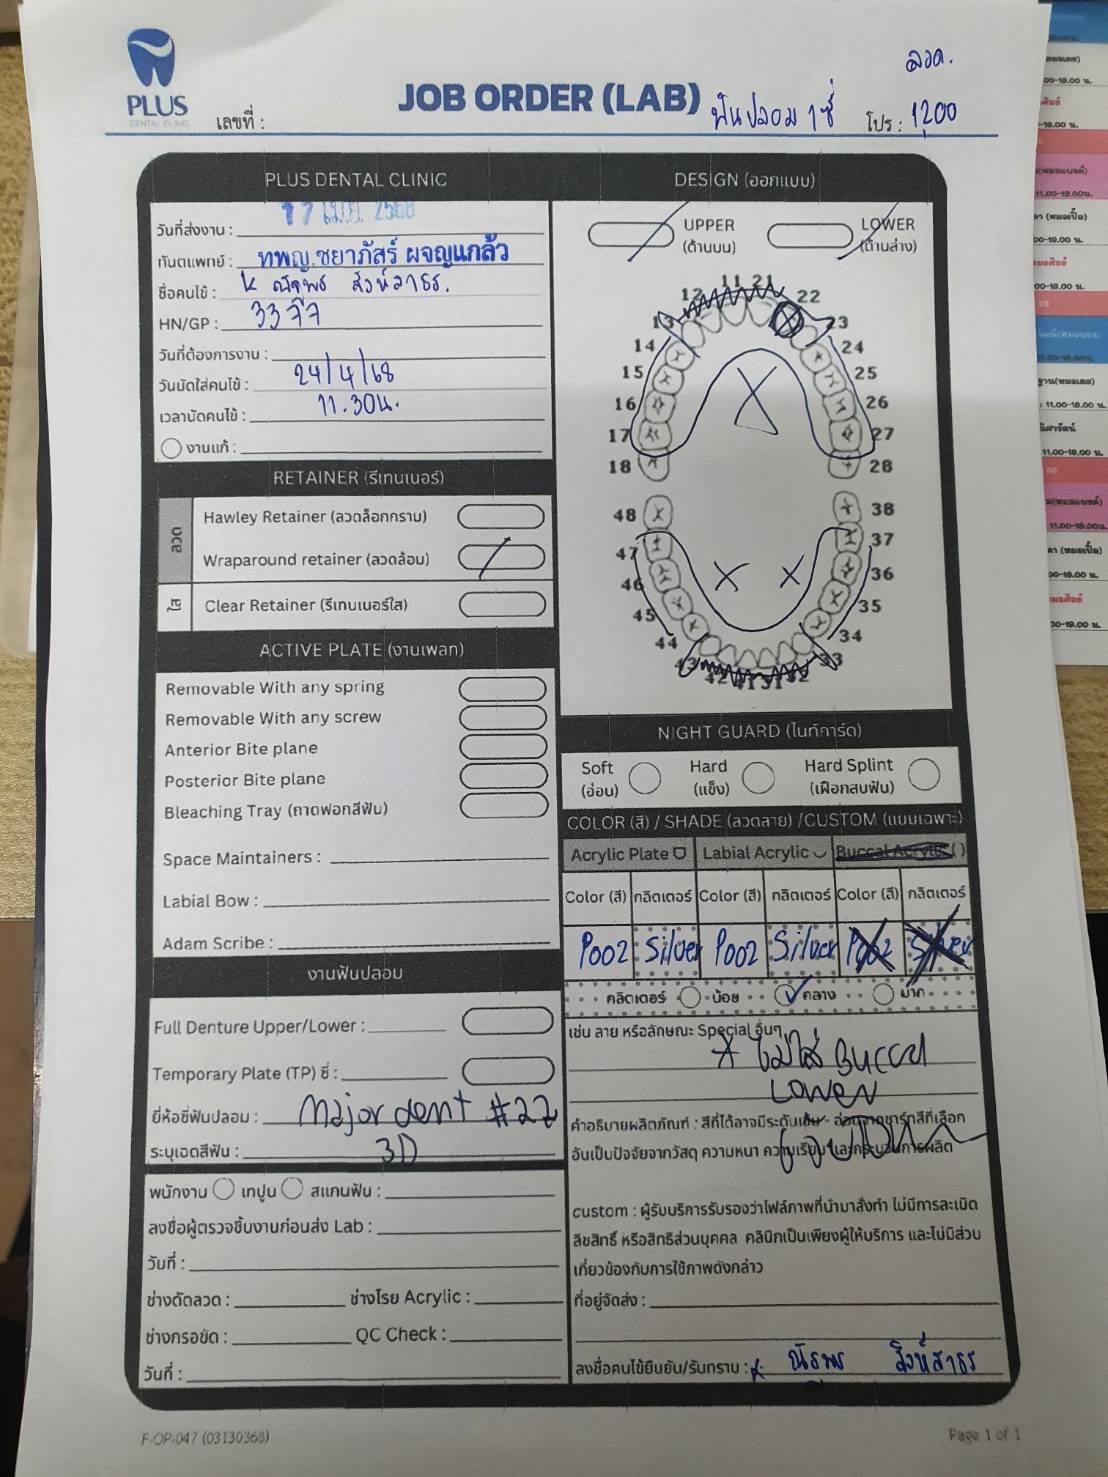 ลวด.
PLUS
DENTAL CLINIC
เลขที่ :
JOB ORDER (LAB)
ฟันปลอม 1 ซี่
โปร : 1200
PLUS DENTAL CLINIC
วันที่ส่งงาน : 17 เม.ย. 2568
ทันตแพทย์ : ทพญ.ชยาภัสร์ ผจญแกล้ว
ชื่อคนไข้ : K
HN/GP : 3377
วันที่ต้องการงาน :
วันนัดใส่คนไข้ : 24/4/68
เวลานัดคนไข้ : 11.30น.
งานแก้ :
RETAINER (รีเทนเนอร์)
ลวด
Hawley Retainer (ลวดล็อกกราม)
Wraparound retainer (ลวดล้อม)
ใส
Clear Retainer (รีเทนเนอร์ใส)
ACTIVE PLATE (งานเพลท)
Removable With any spring
Removable With any screw
Anterior Bite plane
Posterior Bite plane
Bleaching Tray (ถาดฟอกสีฟัน)
Space Maintainers :
Labial Bow :
Adam Scribe :
งานฟันปลอม
Full Denture Upper/Lower :
Temporary Plate (TP) ซี่ :
ยี่ห้อซี่ฟันปลอม : Major dent #22
ระบุเฉดสีฟัน : 3D
พนักงาน เทปูน สแกนฟัน :
ลงชื่อผู้ตรวจชิ้นงานก่อนส่ง Lab :
วันที่ :
ช่างดัดลวด : ช่างโรย Acrylic :
ช่างกรอขัด : QC Check :
วันที่ :
DESIGN (ออกแบบ)
UPPER
(ด้านบน)
LOWER
(ด้านล่าง)
11 21
12 22
13 23
14 24
15 25
16 26
17 27
18 28
48 38
47 37
46 36
45 35
44 34
43 33
42 41 31 32
NIGHT GUARD (ไนท์การ์ด)
Soft
(อ่อน)
Hard
(แข็ง)
Hard Splint
(เฝือกสบฟัน)
COLOR (สี) / SHADE (ลวดลาย) /CUSTOM (แบบเฉพาะ)
Acrylic Plate Labial Acrylic Buccal Acrylic ( )
Color (สี) กลิตเตอร์ Color (สี) กลิตเตอร์ Color (สี) กลิตเตอร์
P002 Silver P002 Silver P002 Silver
กลิตเตอร์ น้อย กลาง มาก
เช่น ลาย หรือลักษณะ Special อื่นๆ
* ไม่ใส่ Buccal
Lower
คำอธิบายผลิตภัณฑ์ : สีที่ได้อาจมีระดับเข้ม - อ่อนจากชาร์ทสีที่เลือก
อันเป็นปัจจัยจากวัสดุ ความหนา ความเรียบ และกระบวนการผลิต
custom : ผู้รับบริการรับรองว่าไฟล์ภาพที่นำมาสั่งทำ ไม่มีการละเมิด
ลิขสิทธิ์ หรือสิทธิส่วนบุคคล คลินิกเป็นเพียงผู้ให้บริการ และไม่มีส่วน
เกี่ยวข้องกับการใช้ภาพดังกล่าว
ที่อยู่จัดส่ง :
ลงชื่อคนไข้ยืนยัน/รับทราบ :
F-OP-047 (03130368)
Page 1 of 1